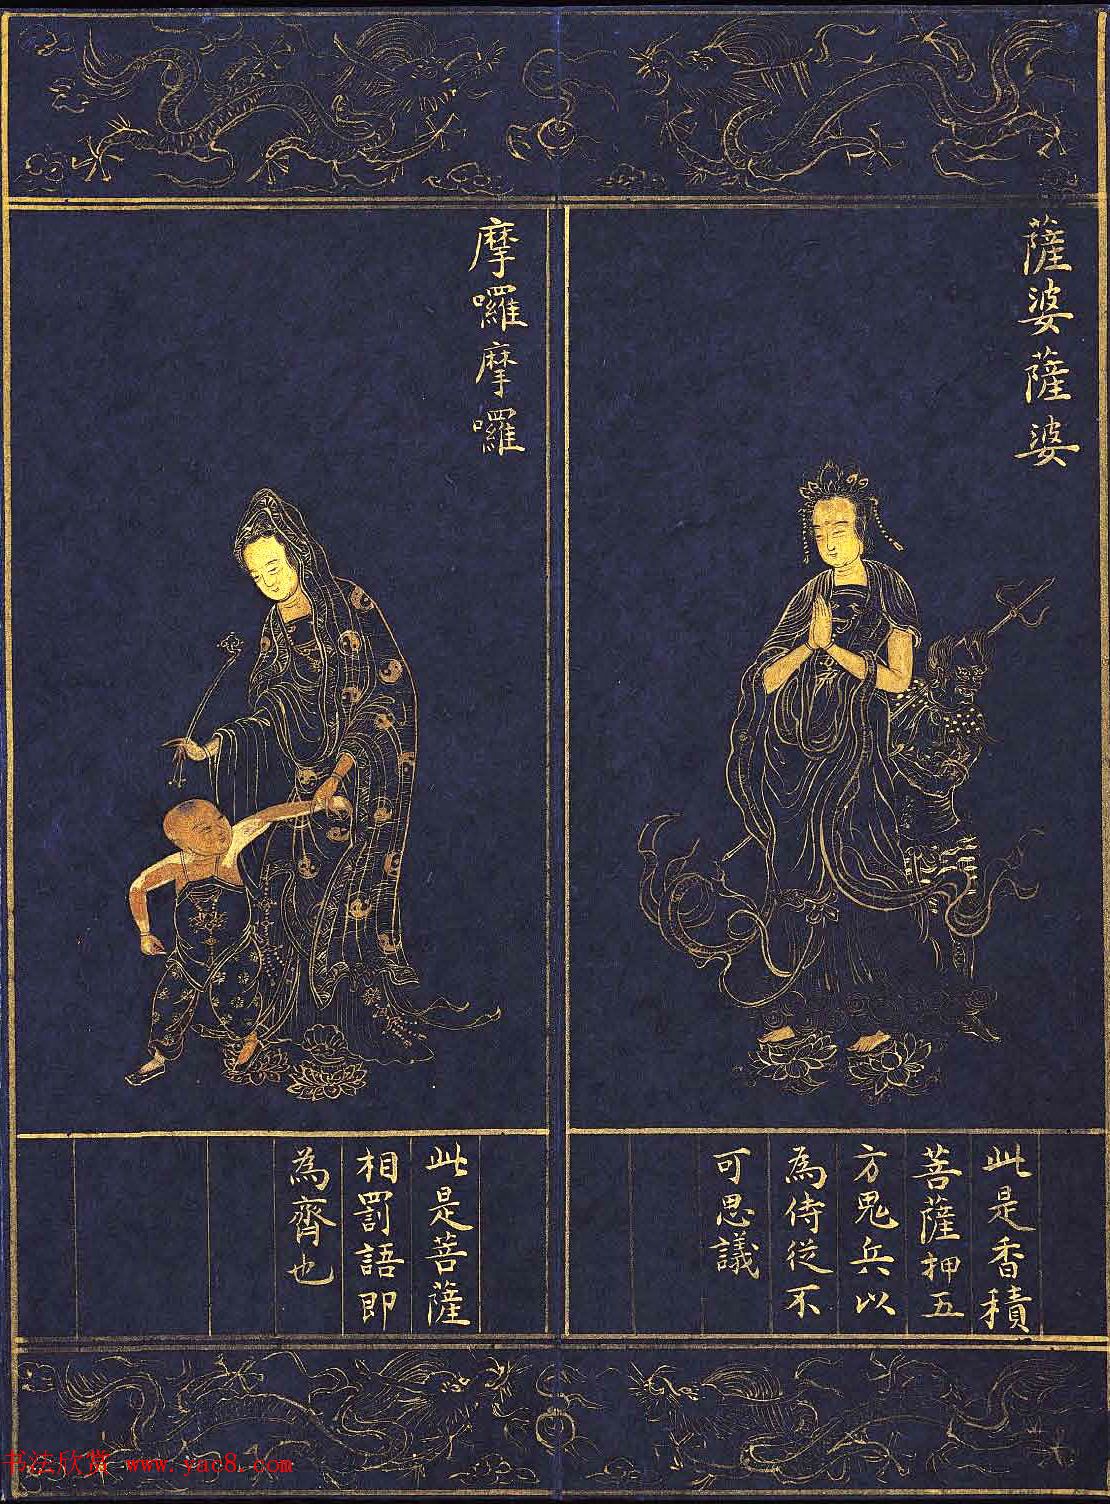 薩婆薩婆
此是香積
菩薩押五
方鬼兵以
為侍從不
可思議
摩囉摩囉
此是菩薩
相罰語即
為齊也
书法欣赏 www.yac8.com